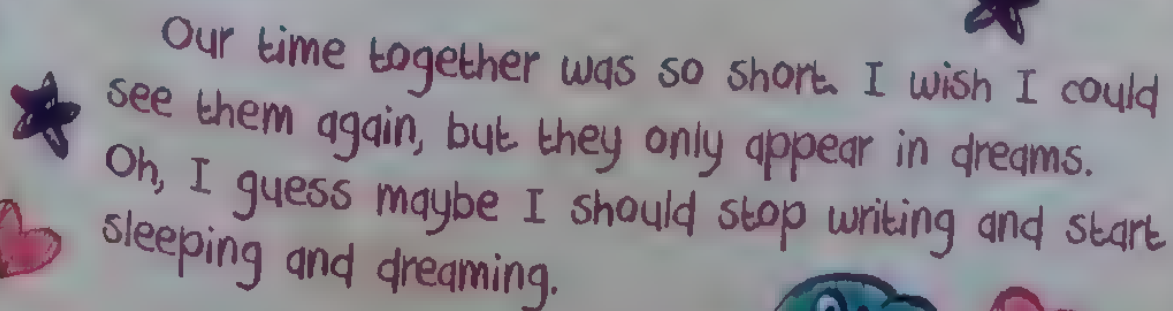 Our time together was so short. I wish I could
see them again, but they only appear in dreams.
Oh, I guess maybe I should stop writing and start
sleeping and dreaming.